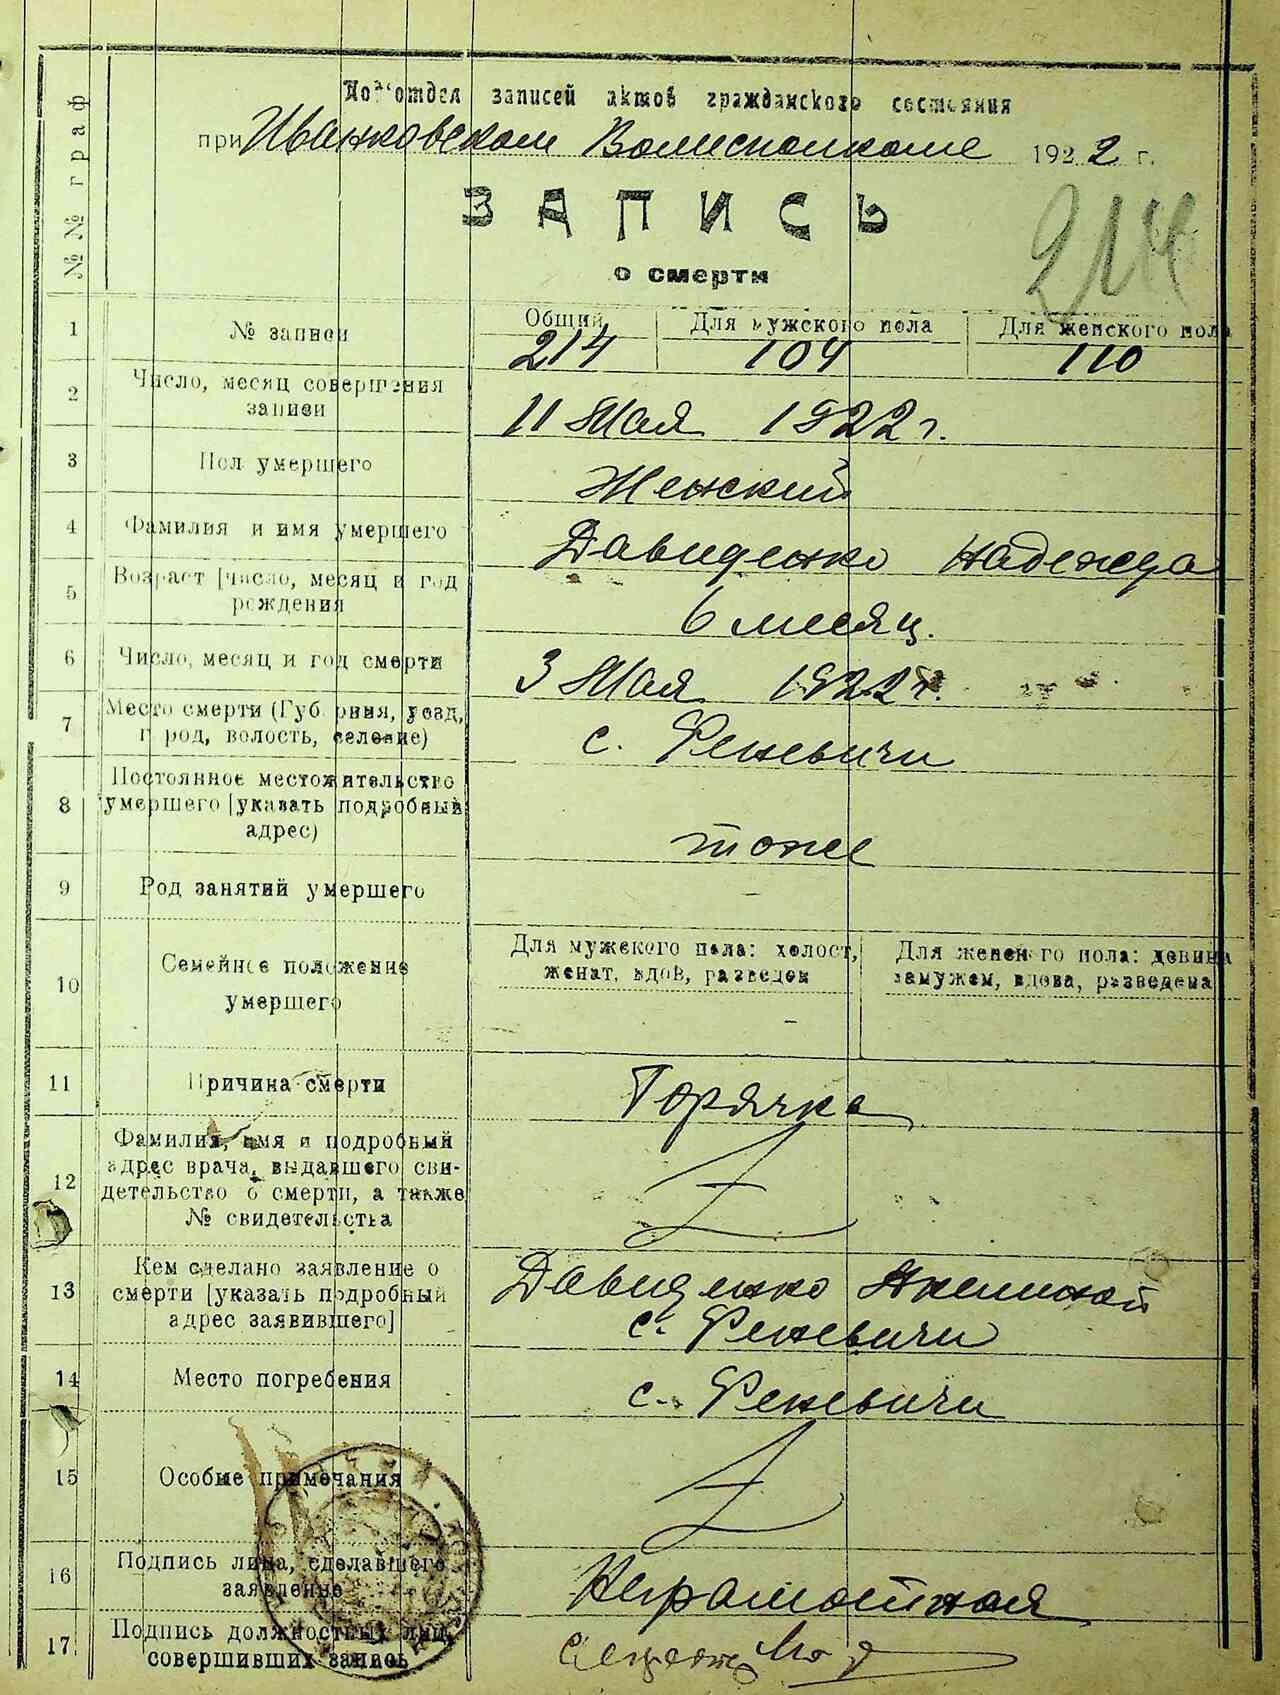 № № граф
Подотдел записей актов гражданского состояния
при Иванковском Волисполкоме 1922 г.
ЗАПИСЬ
о смерти
214
1 № записи Общий Для мужского пола Для женского пола
214 104 110
2 Число, месяц совершения
записи
11 Мая 1922 г.
3 Пол умершего Женский
4 Фамилия и имя умершего Давиденко Надежда
5 Возраст [число, месяц и год
рождения
6 месяц.
6 Число, месяц и год смерти 3 Мая 1922 г.
7 Место смерти (Губерния, уезд,
город, волость, селение)
с. Феневичи
8 Постоянное местожительство
умершего [указать подробный
адрес)
тоже
9 Род занятий умершего -
10 Семейное положение
умершего
Для мужского пола: холост,
женат, вдов, разведен
-
Для женского пола: девица
замужем, вдова, разведена
11 Причина смерти Горячка
12 Фамилия, имя и подробный
адрес врача, выдавшего сви-
детельство о смерти, а также
№ свидетельства
13 Кем сделано заявление о
смерти [указать подробный
адрес заявившего]
Давиденко Акелиной
с. Феневичи
14 Место погребения с. Феневичи
15 Особые примечания
16 Подпись лица, сделавшего
заявление
Неграмотная
17 Подпись должностных лиц,
совершивших запись